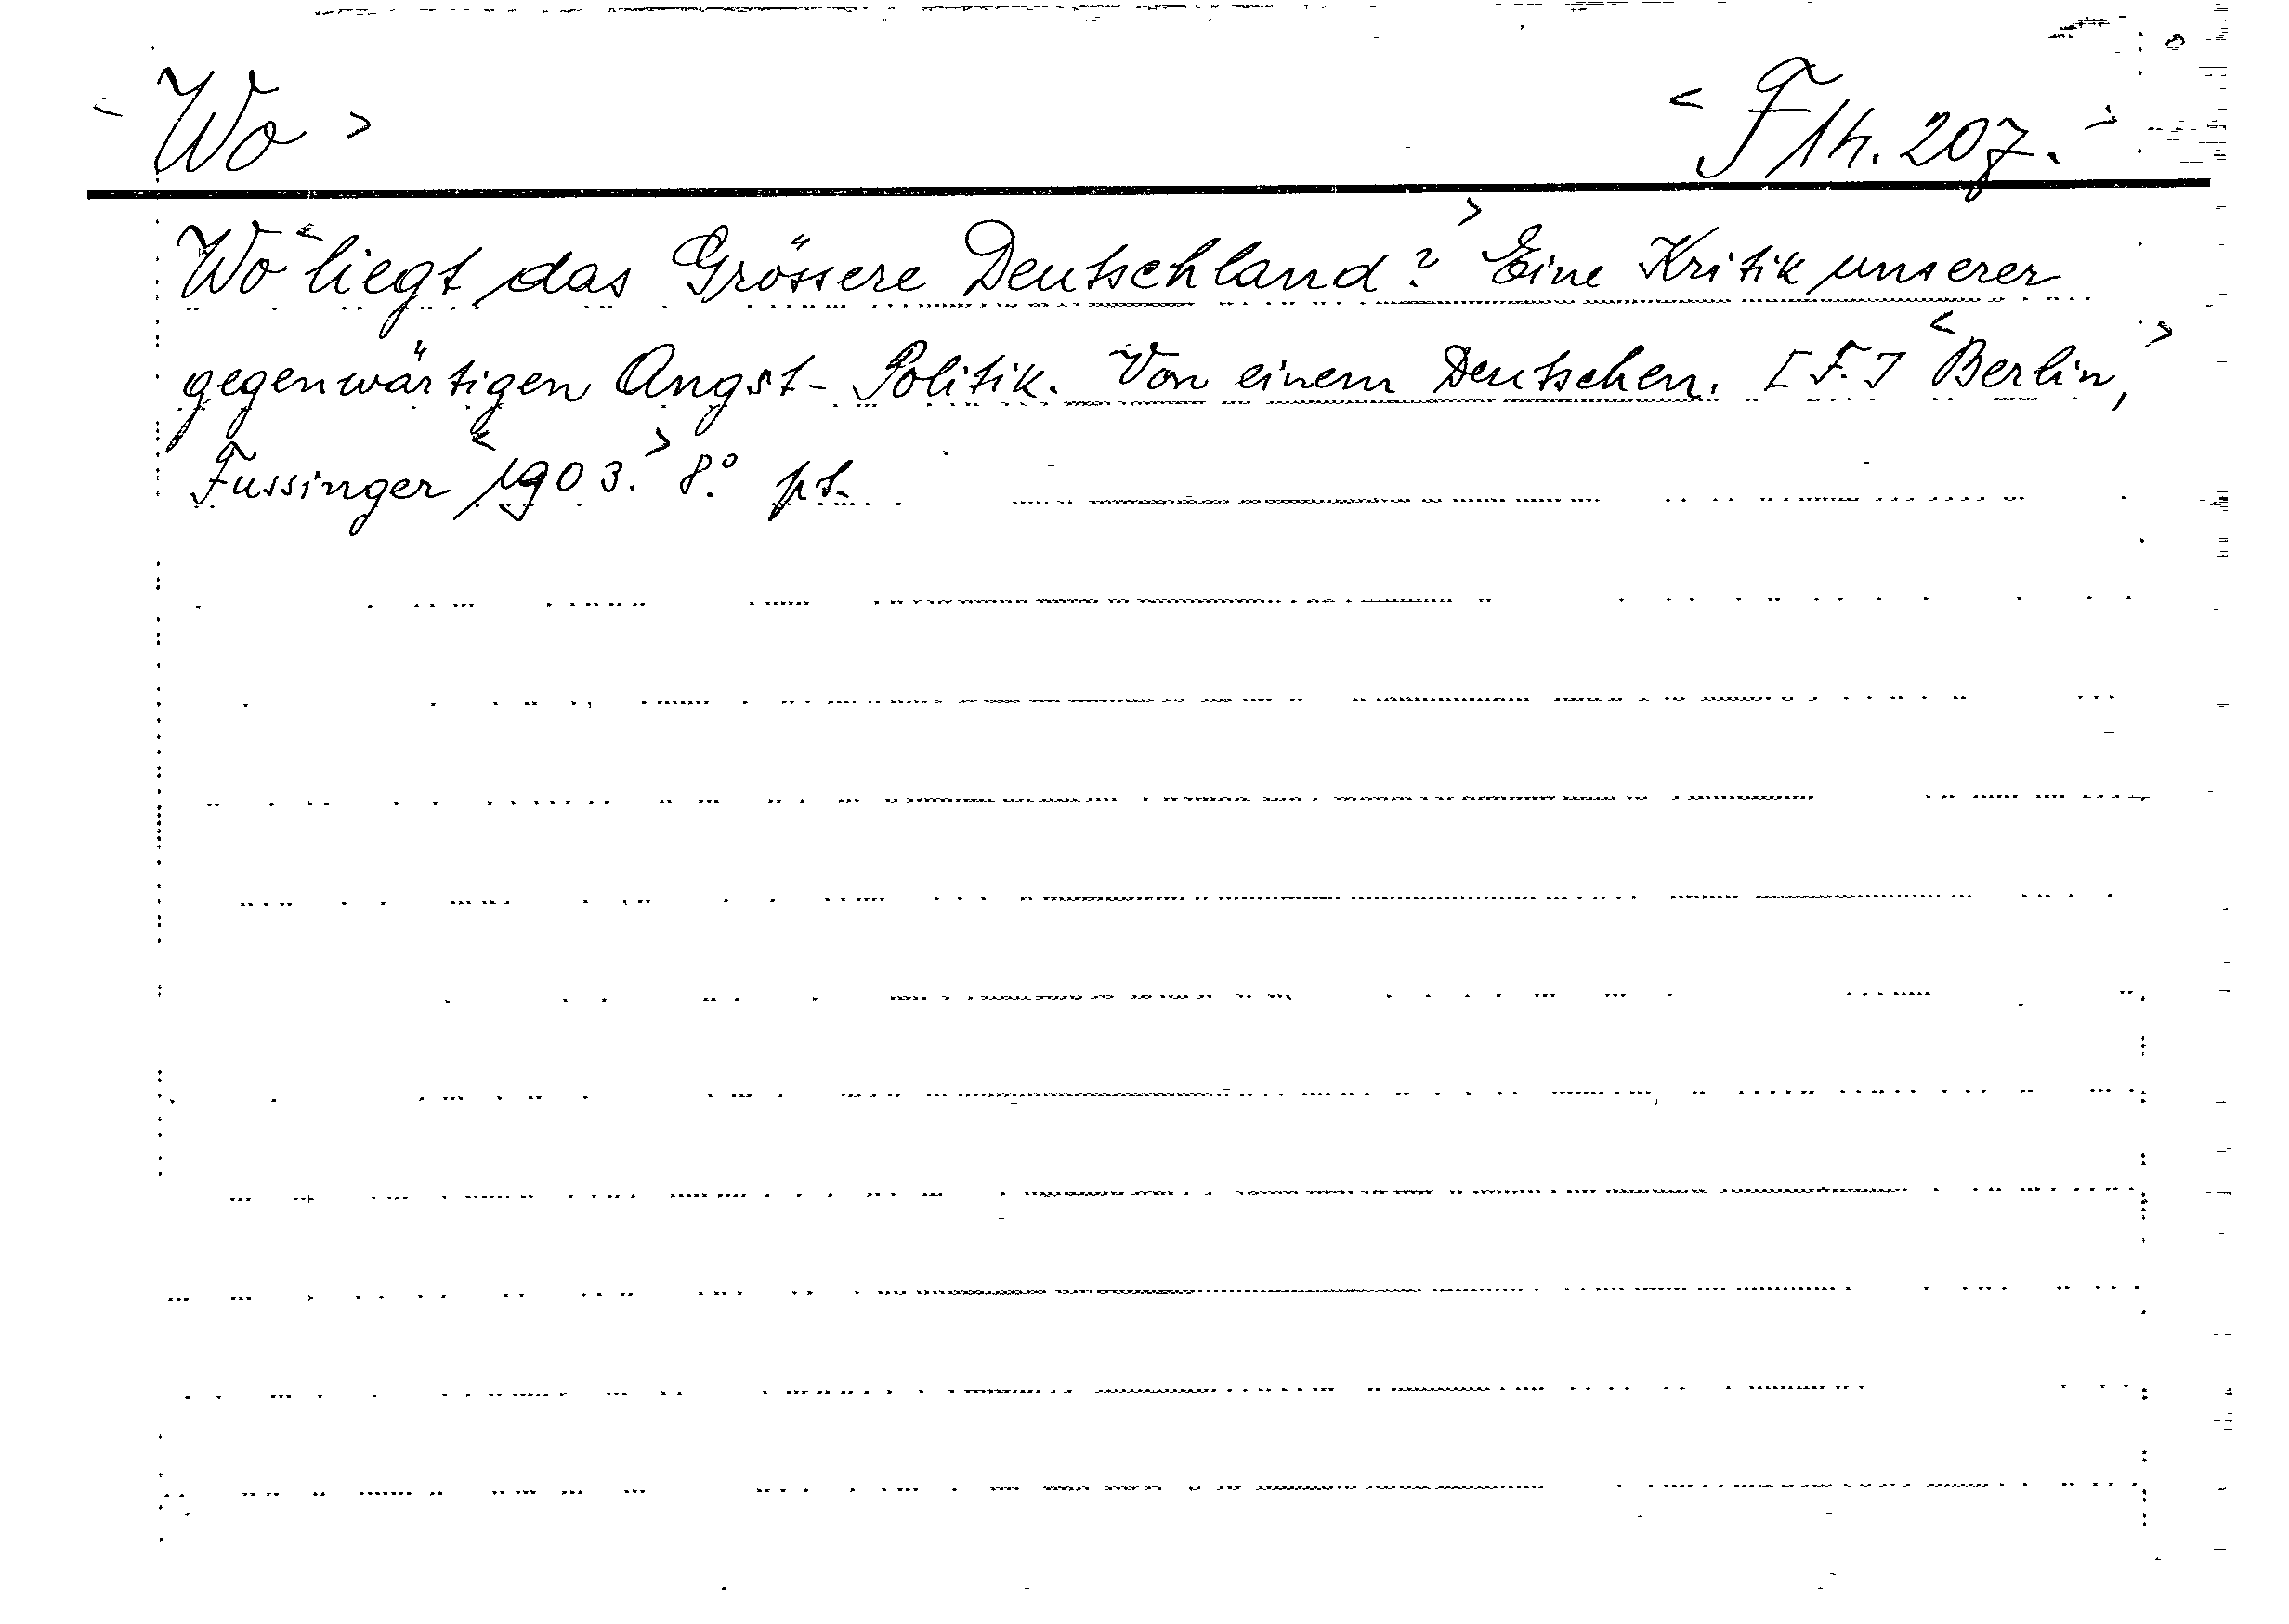 < Wo > < F 14.207. >
Wo < liegt das Grössere Deutschland? > Eine Kritik unserer
gegenwärtigen Angst- Politik. Von einem Deutschen. [F.] < Berlin, >
Fussinger < 1903. > 8.°